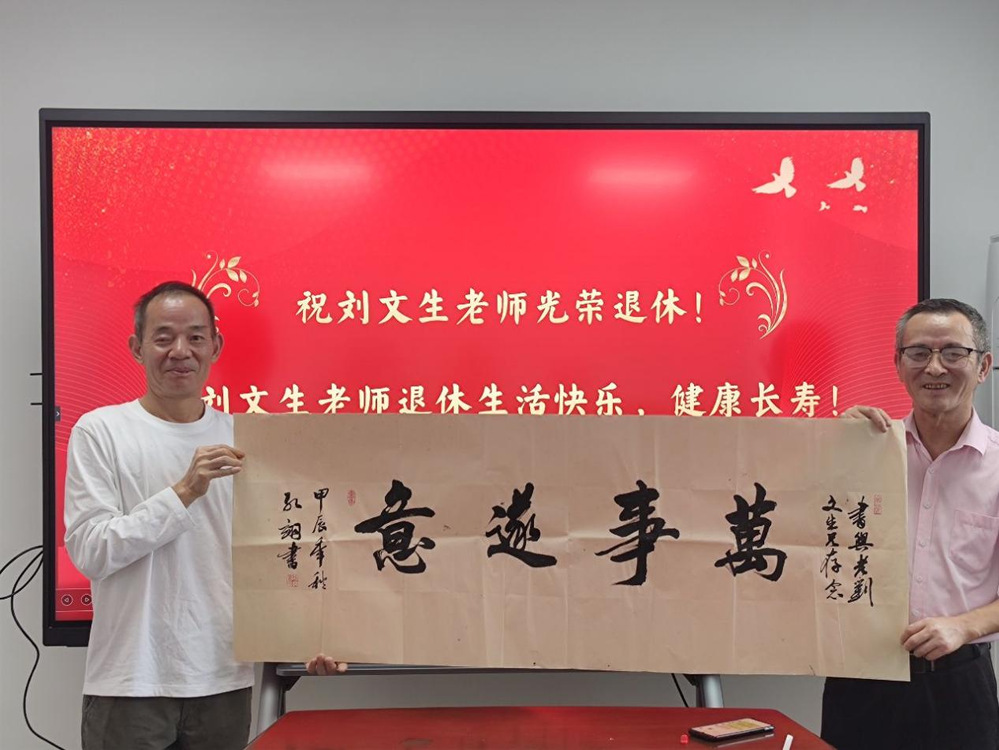 祝刘文生老师光荣退休！
刘文生老师退休生活快乐，健康长寿！
書與老劉
文生兄存念
萬事遂意
甲辰年秋
書